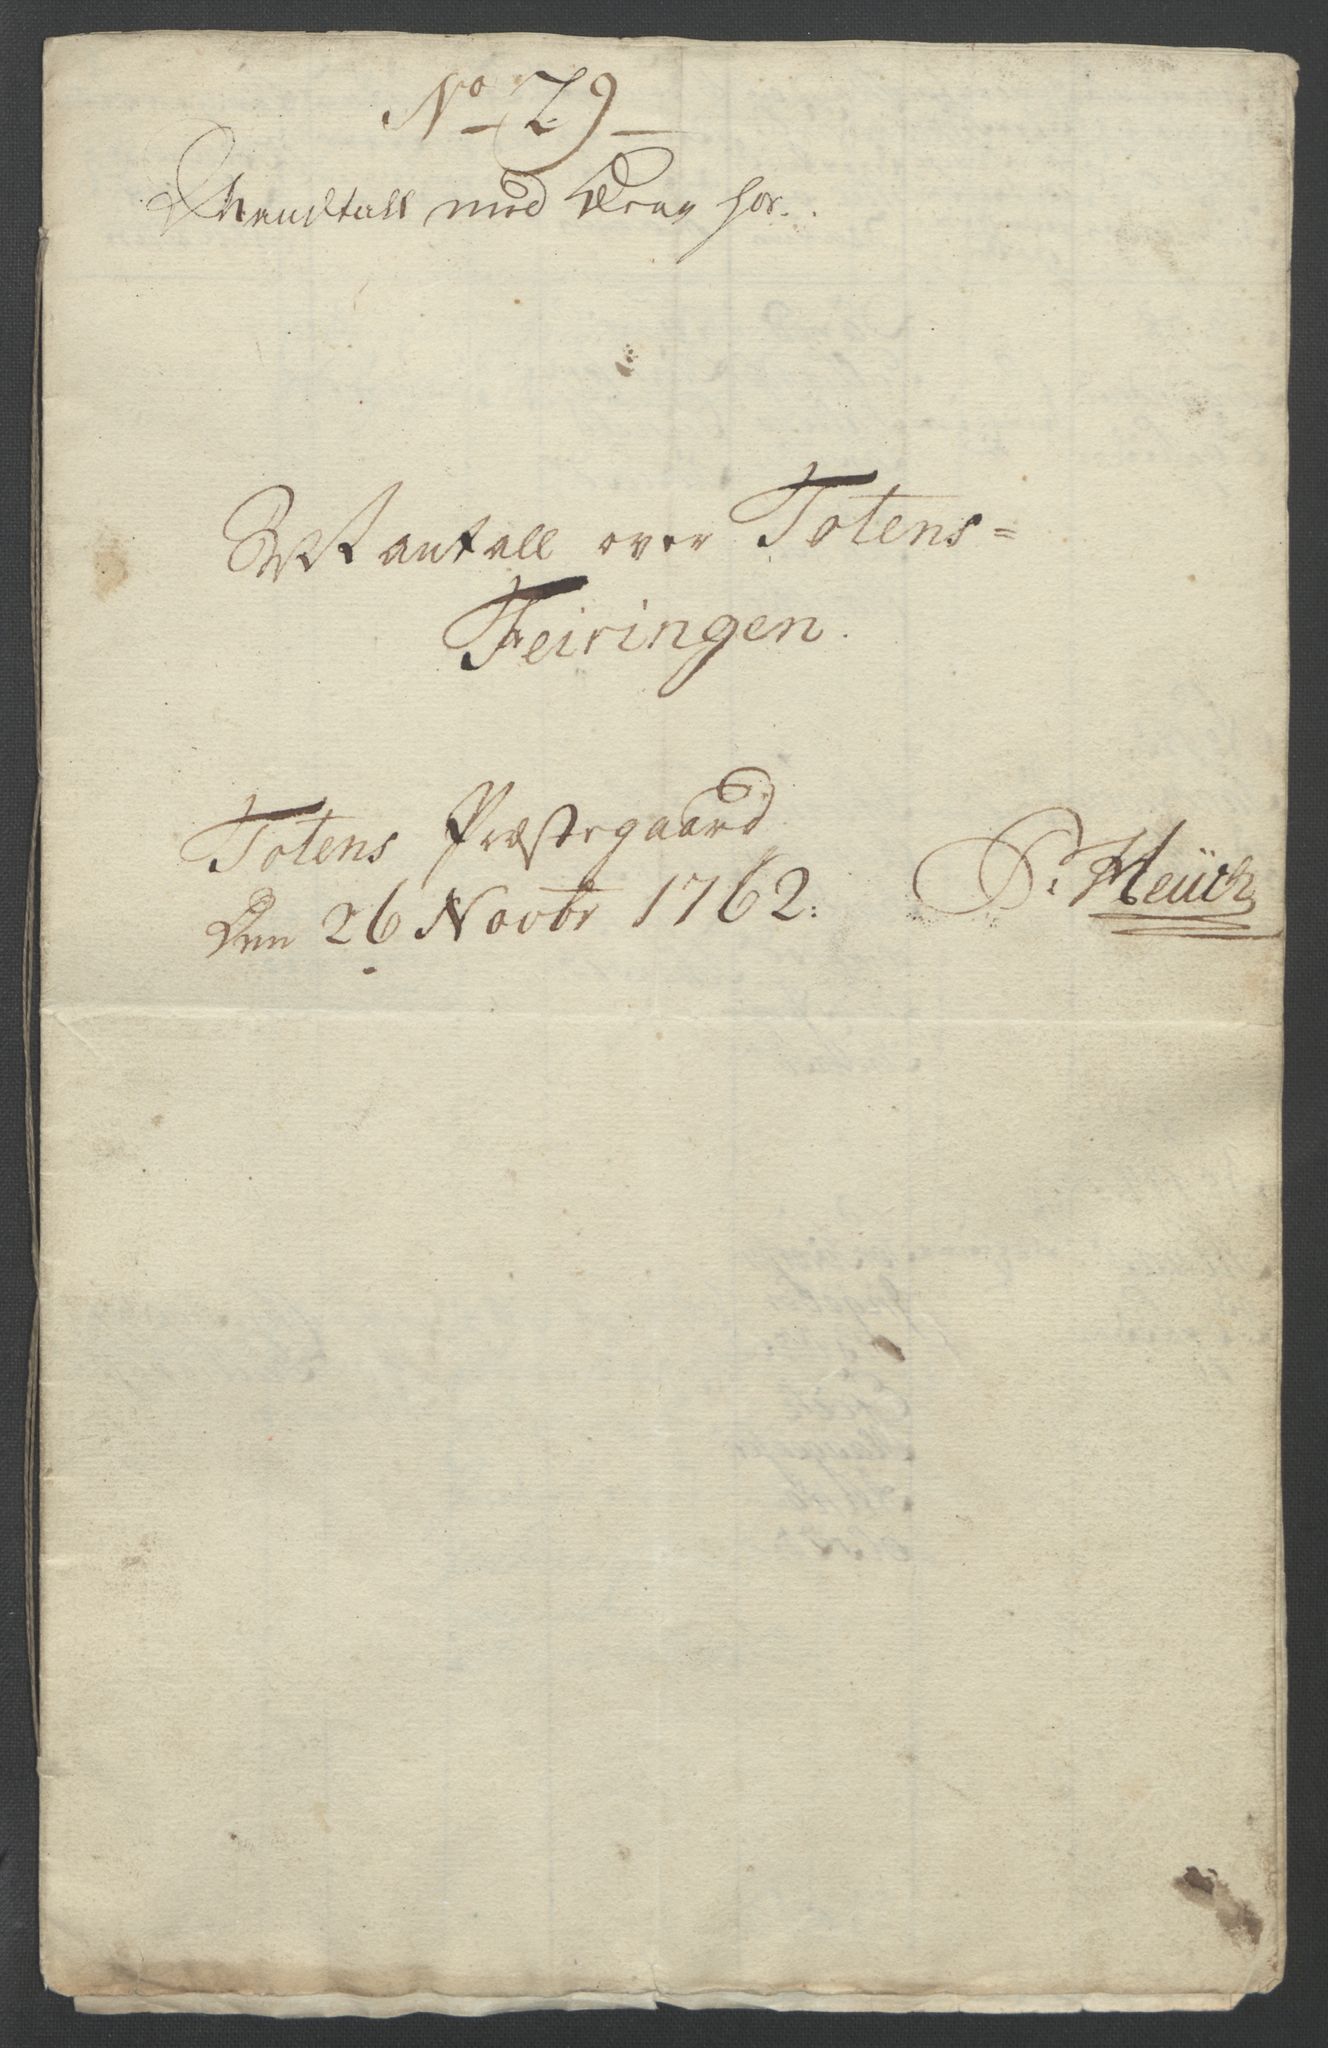 No 29
Mandtall med
Mantall over Totens=
Feiringen.
Totens Præstegaard
Den 26 Novbr 1762.
P. Heüch